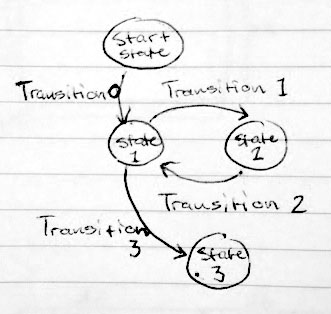 Start
state
Transition 0
Transition 1
State
1
State
2
Transition 2
Transition
3
State
3